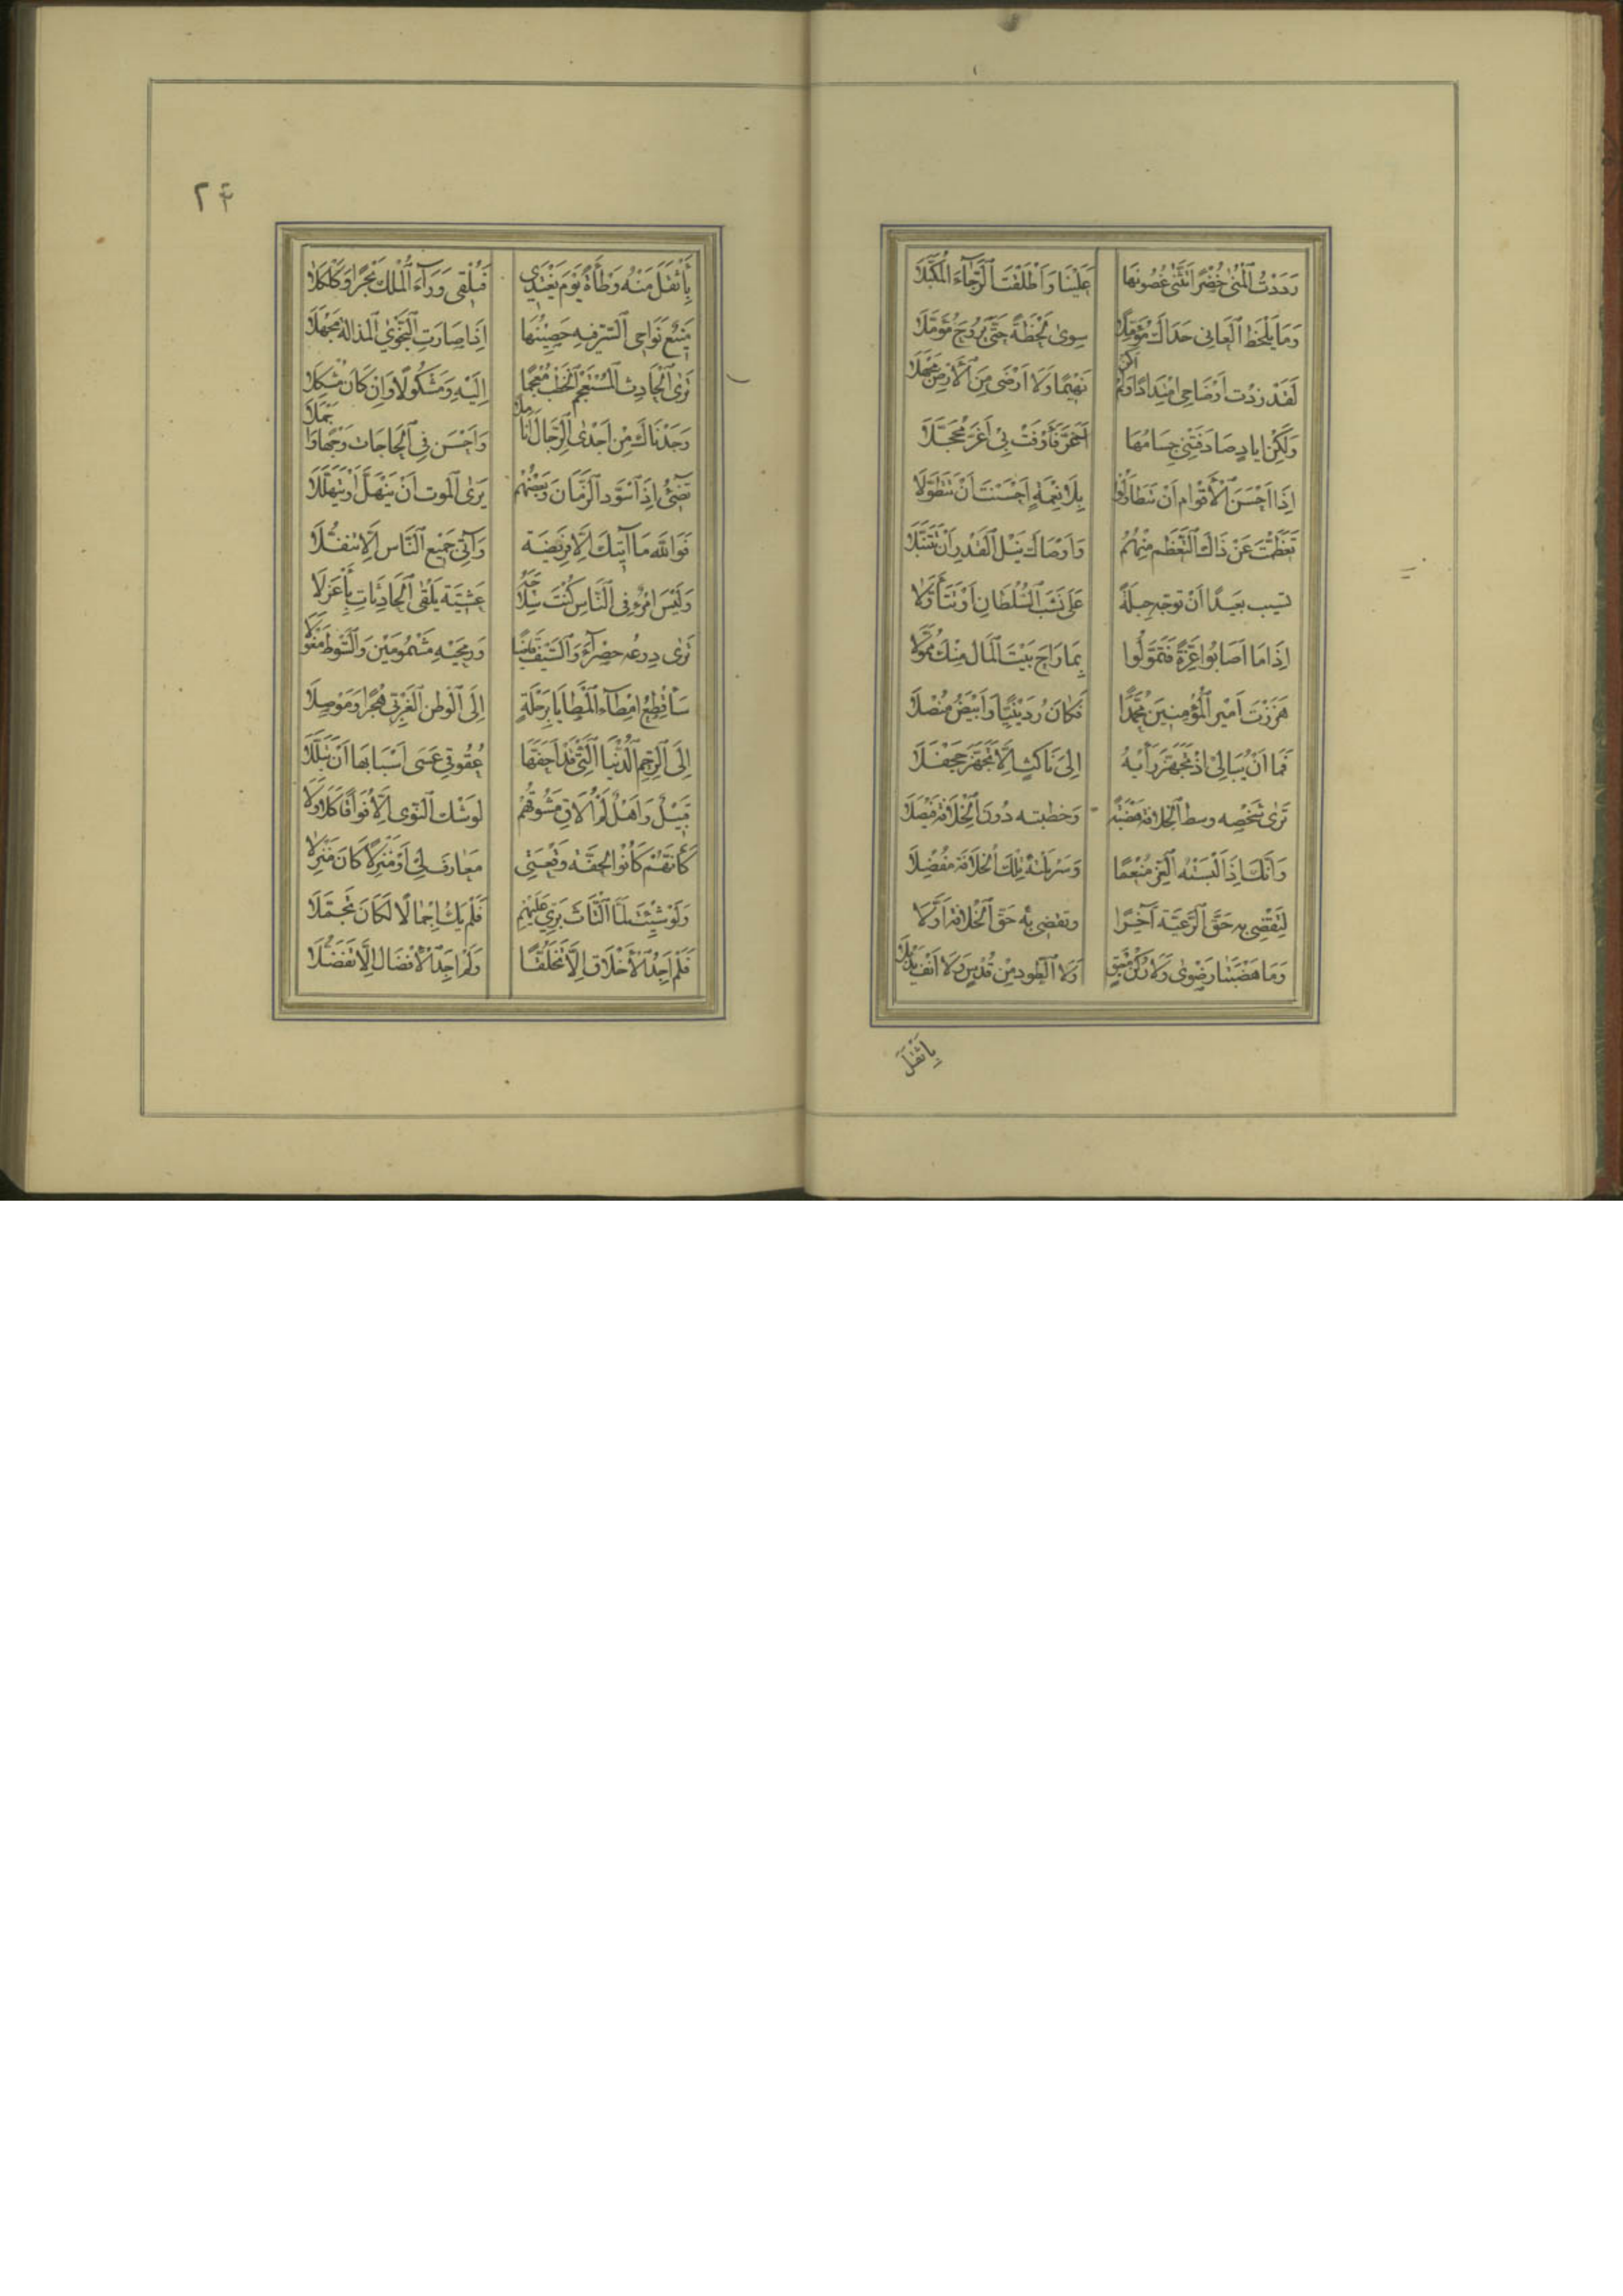 رَدَدْتُ الْمُنَى خُضْرًا تَثَنَّى غُصُونُهَا عَلَيْنَا وَأَطْلَقْتَ الرَّجَاءَ الْمُكَبَّلَا
وَمَا يَلْحَظُ الْعَافِي جَدَاكَ مُؤَمِّلًا سِوَى لَحْظَةً حَتَّى يَرُوحَ مُؤَمَّلَا
لَقَدْ زِدْتَ أَوْضَاحِي امْتِدَادًا وَلَمْ أَكُنْ بَهِيمًا وَلَا أَرْضَى مِنَ الْأَرْضِ مَجْهَلَا
وَلَكِنْ أَيَادٍ صَادَفَتْنِي جِسَامُهَا أَغَرَّ فَأَوْفَتْ بِي أَغَرَّ مُحَجَّلَا
إِذَا أَحْسَنَ الْأَقْوَامُ أَنْ يَتَطَاوَلُوا بِلَا نِعْمَةٍ أَحْسَنْتَ أَنْ تَتَطَوَّلَا
تَعَظَّمْتَ عَنْ ذَاكَ التَّعَظُّمِ مِنْهُمُ وَأَوْصَاكَ نُبْلُ الْقَدْرِ أَنْ تَتَنَبَّلَا
تبيت بعيدًا أَنْ توجه حِيلَةً عَلَى نَشَبِ السُّلْطَانِ أَوْ تَتَأَوَّلَا
إِذَا مَا أَصَابُوا غِرَّةً فَتَمَوَّلُوا بِهَا رَاحَ بَيْتُ الْمَالِ مِنْكَ مُمَوَّلَا
هَزَزْتَ أَمِيرَ الْمُؤْمِنِينَ مُحَمَّدًا فَكَانَ رُدَيْنِيًّا وَأَبْيَضَ مُنْصُلَا
فَمَا أَنْ يُبَالِي إِذْ تَجَهَّزَ رَأْيُهُ إِلَى نَاكِثٍ أَلَّا تُجَهِّزَ جَحْفَلَا
تَرَى شَخْصَهُ وسط الْخِلَافَةِ هَضْبَةً وَخطبته دُونَ الْخِلَافَةِ فَيْصَلَا
وَأَنَّكَ إِذْ أَلْبَسْتَهُ الْعِزَّ مُنْعِمًا وَسَرْبَلْتَهُ تِلْكَ الْخِلَافَةَ مُفْضِلَا
لِتَقْضِي بِهِ حَقَّ الرَّعِيَّةِ آخِرًا وتقضي بِهِ حَقَّ الْخِلَافَةِ أَوَّلَا
وَمَا هَضْبَتَا رَضْوَى وَلَا رُكْنُ مُعْنِقٍ وَلَا الطَّودُ مِنْ قُدْسٍ وَلَا أَنْفُ يَذْبُلَا
بِأَثْقَلَ
٢٤
بِأَثْقَلَ مِنْهُ وَطْأَةً يَوْمَ يَغْتَدِي فَيُلْقِي وَرَاءَ الْمُلْكِ نَحْرًا وَكَلْكَلَا
مَنِيعُ نَوَاحِي السِّرِّ فِيهِ حَصِينُهَا إِذَا صَارَتِ النَّجْوَى الْمُذَالَةُ مَحْفِلَا
تَرَى الْحَادِثَ الْمُسْتَعْجِمَ الْخَطْبِ مُعْجَمًا إِلَيْهِ وَمَشْكُولًا وَإِنْ كَانَ مُشْكِلَا
وَجَدْنَاكَ مِنْ أَجْدَى الرِّجَالِ أَنَامِلًا وَأَحْسَنَ فِي الْحَاجَاتِ وَجْهًا وَأَجْمَلَا
تُضِيءُ إِذَا اسْوَدَّ الزَّمَانُ وَبَعْضُهُمْ يَرَى الْمَوْتَ أَنْ يَنْهَلَّ أَوْ يَتَهَلَّلَا
فَوَاللَّهِ مَا آتِيكَ إِلَّا فَرِيضَةً وَآتِي جَمِيعَ النَّاسِ إِلَّا تَنَفُّلَا
وَلَيْسَ امْرُؤٌ فِي النَّاسِ كُنْتَ سِلَاحَهُ عَشِيَّةَ يَلْقَى الْحَادِثَاتِ بِأَعْزَلَا
تَرَى دِرْعَهُ حصداء وَالسَّيْفَ قَاضِبًا وَزُجَّيْهِ مَسْمُومَيْنِ وَالسَّوْطَ مِغْوَلَا
سَأَقْطَعُ أَمْطَاءَ الْمَطَايَا بِرَحْلَةٍ إِلَى الْوَطَنِ الْغَرْبِيِّ هَجْرًا وَمَوْصِلَا
إِلَى الرَّحِمِ الدُّنْيَا الَّتِي قَدْ أَجَفَّهَا عُقُوقِي عَسَى أَسْبَابُهَا أَنْ تَبَلَّلَا
قَبِيلٌ وَأَهْلٌ لَمْ أُلَاقِ مَشُوقَهُمْ لِوَشْكِ النَّوَى إِلَّا فُوَاقًا كَلَا وَلَا
كَأَنَّهُمُ كَانُوا لِخِفَّةِ وَقْعَتِي مَعَارِفَ لِي أَوْ مَنْزِلًا كَانَ مَنْزِلَا
وَلَوْ شِيتُ لَمَّا الْتَاثَ بِرِّي عَلَيْهِمُ فَلَمْ يَكُ إِجْمَالًا لَكَانَ تَجَمُّلَا
فَلَمْ أَجِدِ الْأَخْلَاقَ إِلَّا تَخَلُّقًا وَلَمْ أَجِدِ الْأَفْضَالَ إِلَّا تَفَضُّلَا